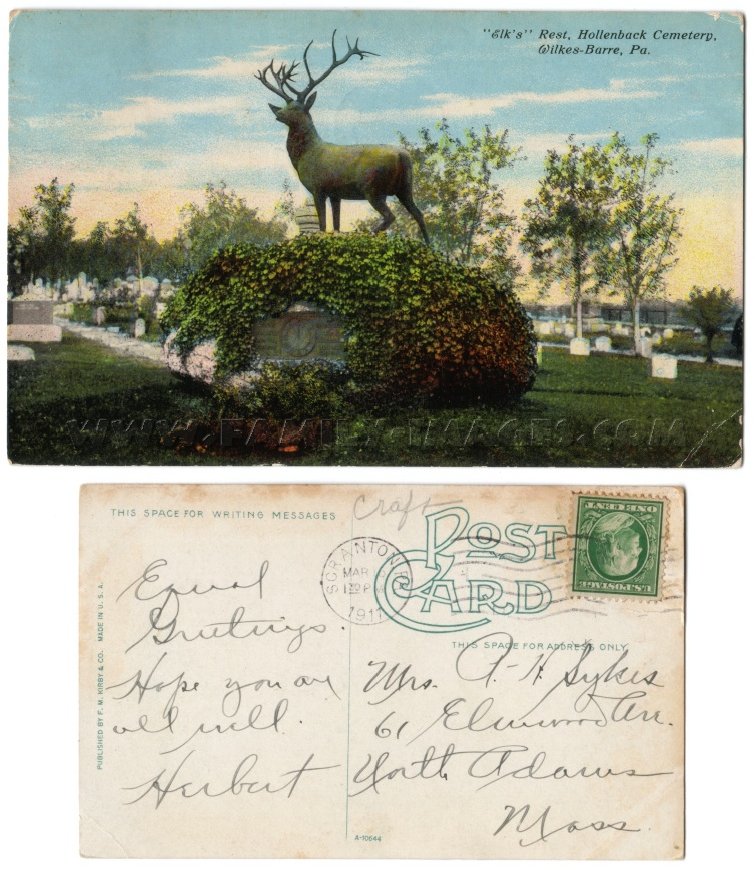 "Elk's" Rest, Hollenback Cemetery,
Wilkes-Barre, Pa.
WWW.FAMILY-IMAGES.COM
THIS SPACE FOR WRITING MESSAGES
Craft
POST
CARD
SCRANTON, PA.
MAR
1911
U.S. POSTAGE
ONE CENT
THIS SPACE FOR ADDRESS ONLY
Greetings.
Hope you are
all well.
Herbert
Mrs. A. H. Sykes
61 Elmwood Ave.
North Adams
Mass.
PUBLISHED BY F. M. KIRBY & CO. MADE IN U. S. A.
A-10644